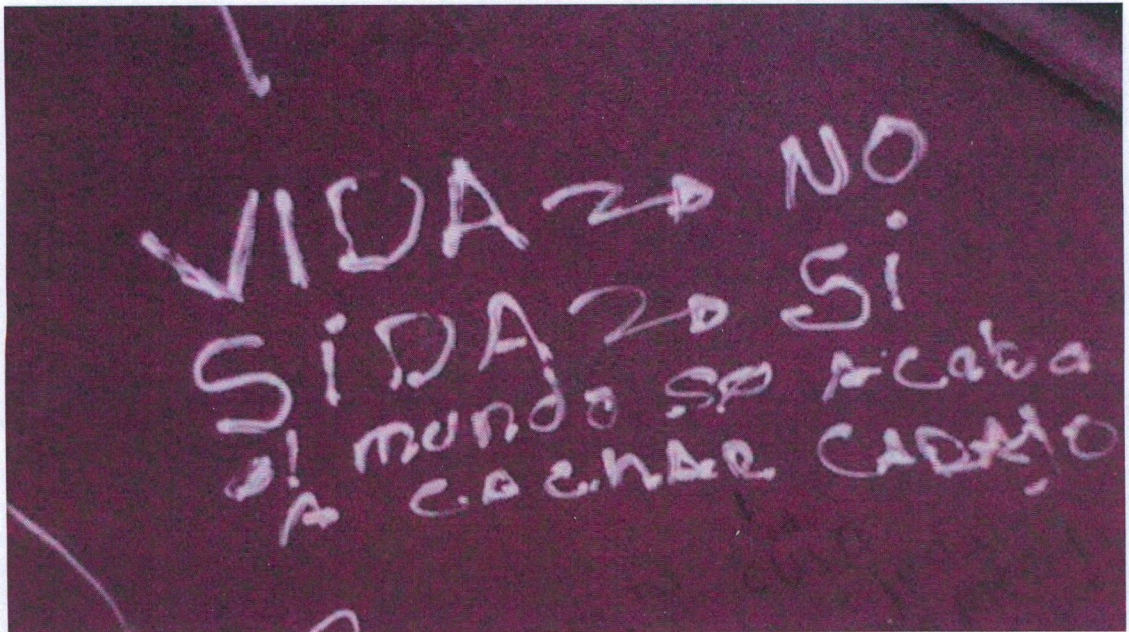 VIDA → NO
SiDA → Si
el mundo se Acaba
A CACHAR CARAJO